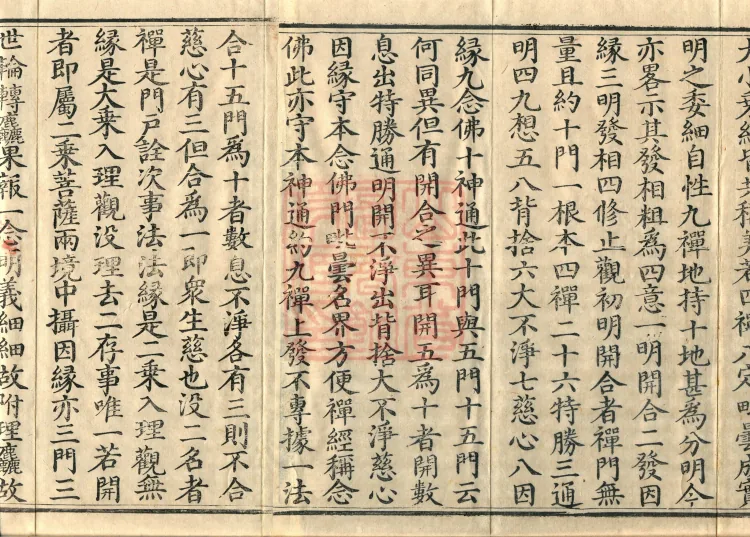 若四禪八定毗曇成實
明之委細自性九禪地持十地甚為分明今
亦畧示其發相粗為四意一明開合二發因
緣三明發相四修止觀初明開合者禪門無
量且約十門一根本四禪二十六特勝三通
明四九想五八背捨六大不淨七慈心八因
緣九念佛十神通此十門與五門十五門云
何同異但有開合之異耳開五為十者開數
息出特勝通明開不淨出背捨大不淨慈心
因緣守本念佛門毗曇名界方便禪經稱念
佛此亦守本神通約九禪上發不專據一法
合十五門為十者數息不淨各有三則不合
慈心有三但合為一即衆生慈也没二名者
禪是門戶詮次事法法緣是二乘入理觀無
緣是大乘入理觀没理去二存事唯一若開
者即屬二乘菩薩兩境中攝因緣亦三門三
世輪轉麤果報一念明義細細故附理麤故